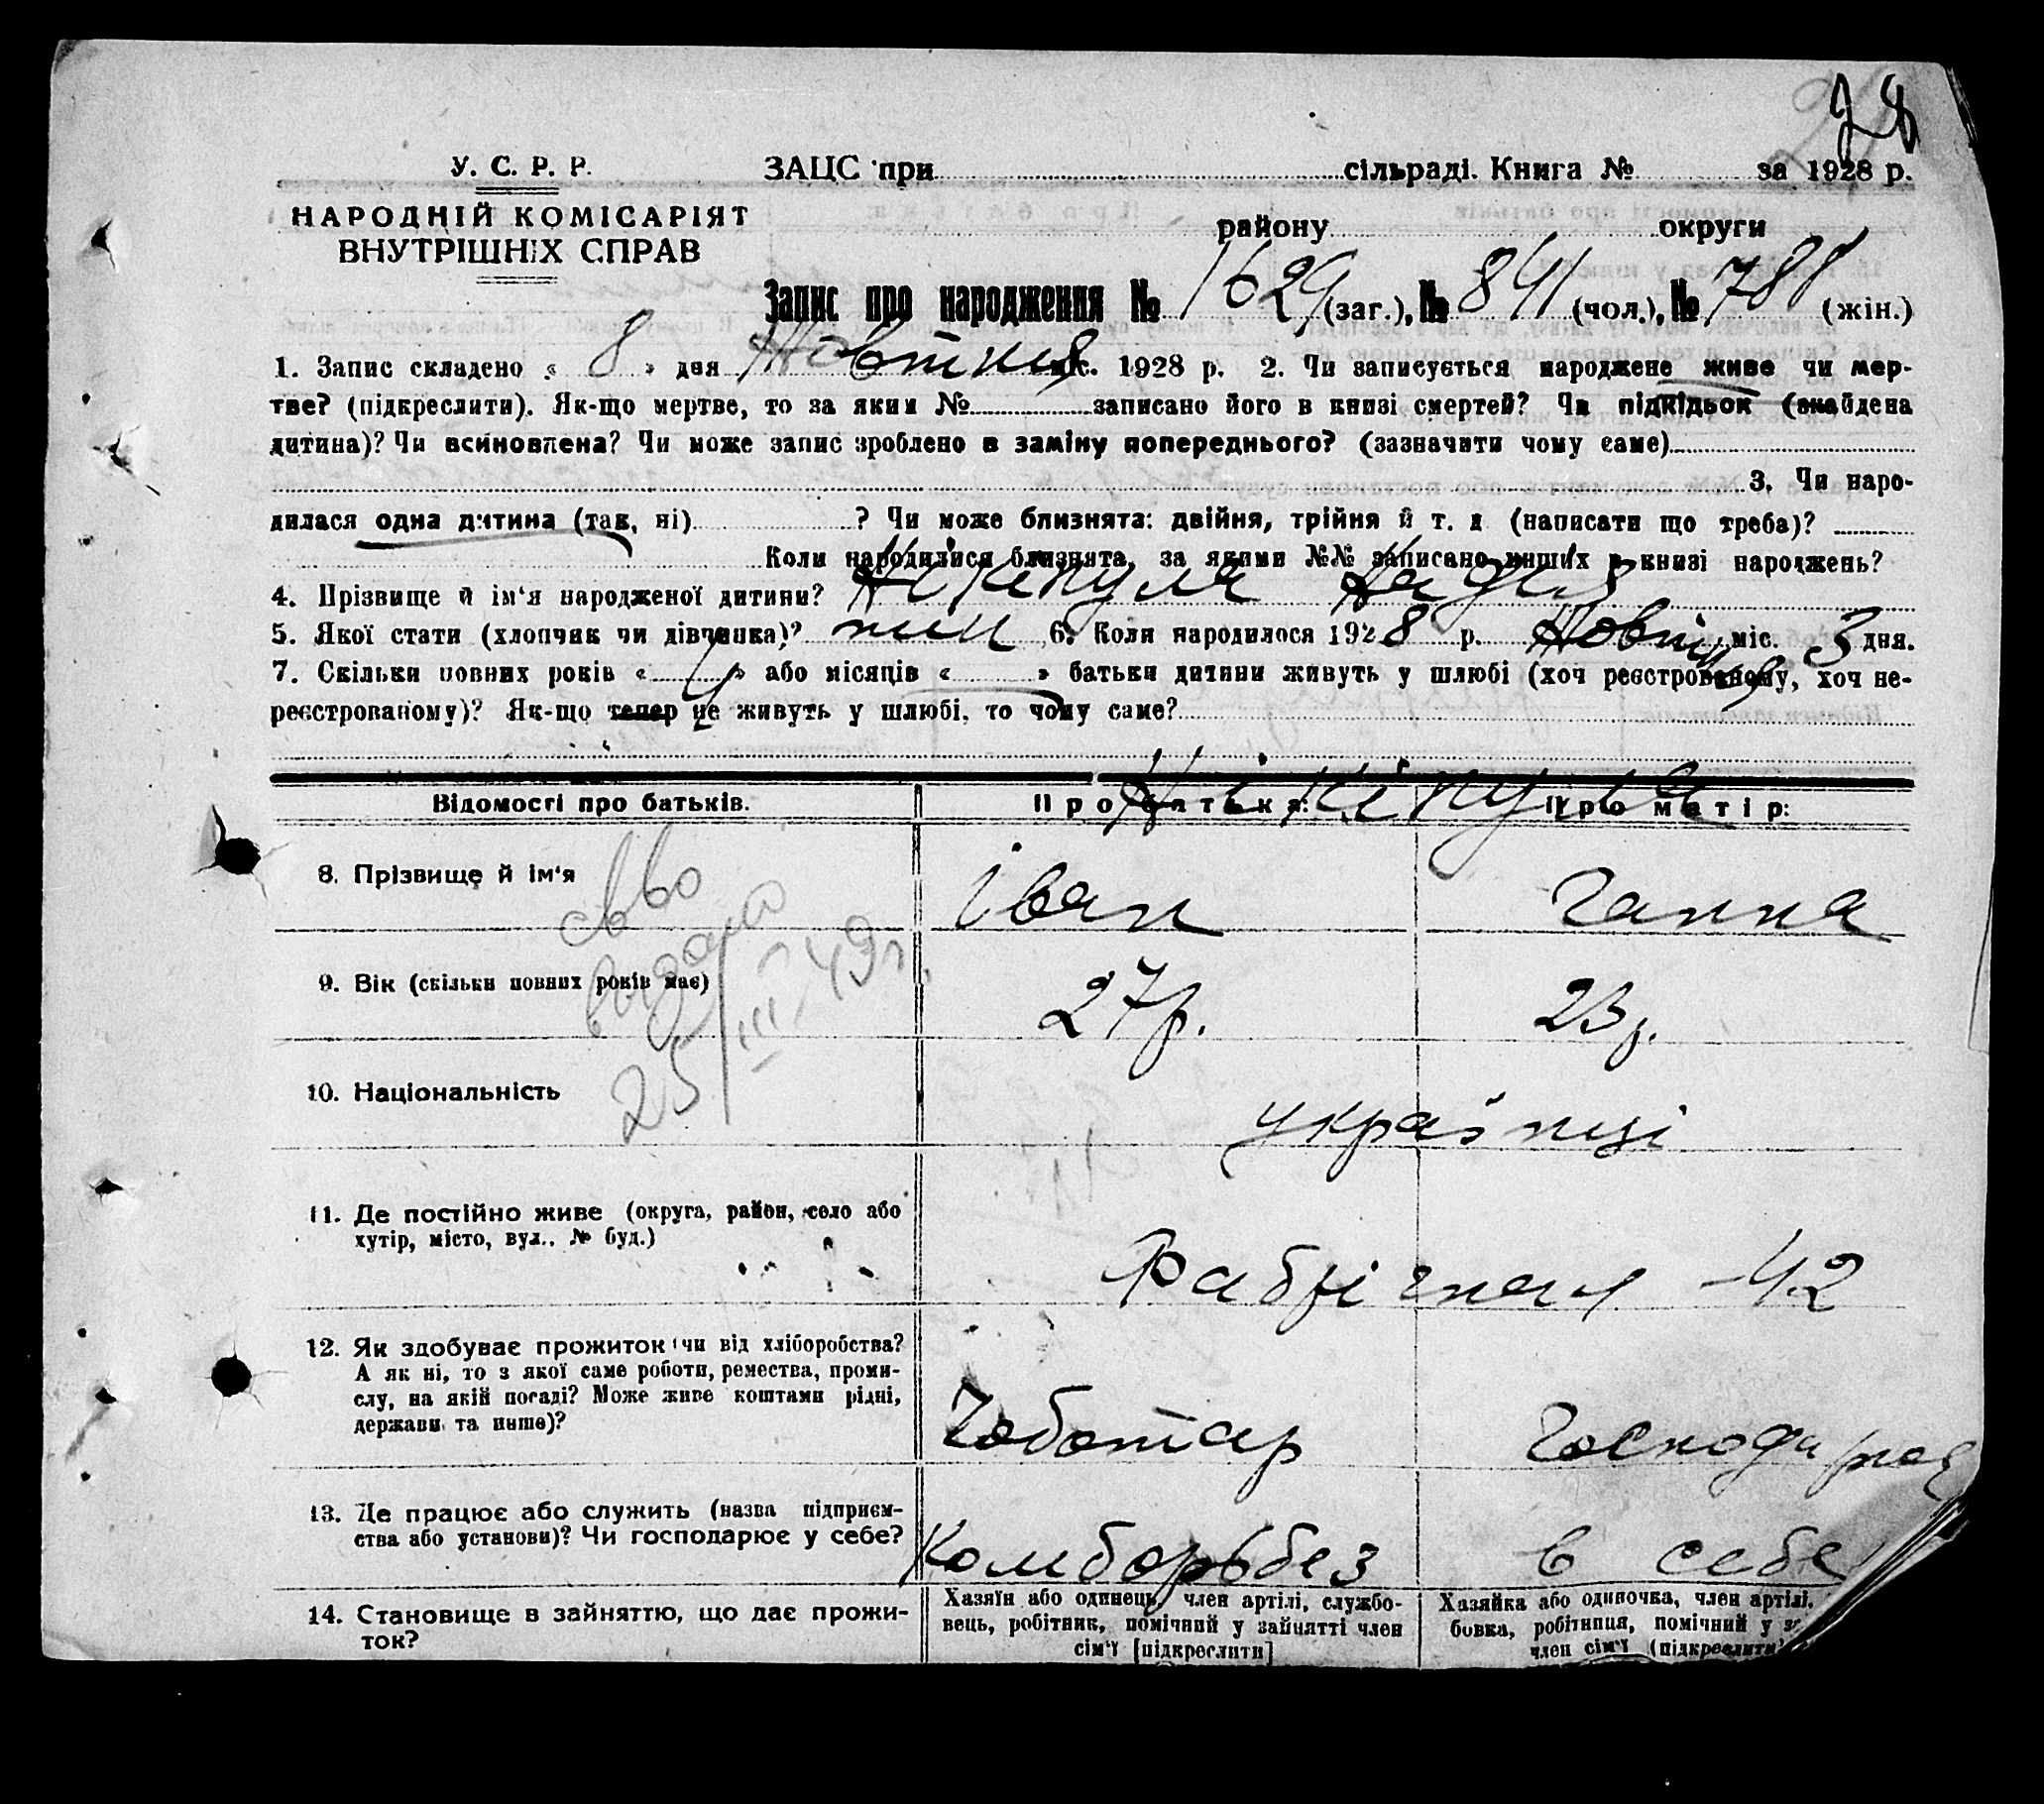 28
У. С. Р. Р.
ЗАЦС при сільраді. Книга № за 1928 р.
НАРОДНІЙ КОМІСАРІЯТ
ВНУТРІШНІХ СПРАВ
району округи
Запис про народження № 1629 (заг.), № 841 (чол.), № 788 (жін.)
1. Запис складено « 8 » дня Жовтня міс. 1928 р. 2. Чи записується народжене живе чи мер-
тве? (підкреслити). Як-що мертве, то за яким № записано його в книзі смертей? Чи підкідьок (знайдена
дитина)? Чи всиновлена? Чи може запис зроблено в заміну попереднього? (зазначити чому саме)
3. Чи наро-
дилася одна дитина (так, ні) ? Чи може близнята: двійня, трійня й т. д (написати що треба)?
Коли народилися близнята, за якими №№ записано инших в книзі народжень?
4. Прізвище й ім'я народженої дитини? Надія
5. Якої стати (хлопчик чи дівчинка)? жін 6. Коли народилося 1928 р. Жовтня міс. 3 дня.
7. Скільки повних років « 4 » або місяців « » батьки дитини живуть у шлюбі (хоч реєстрованому, хоч не-
реєстрованому)? Як-що тепер не живуть у шлюбі, то чому саме?
Відомості про батьків. Про батька: Про матір:
8. Прізвище й ім'я Іван Ганна
св-во
видано
25/III-49г.
9. Вік (скільки повних років має) 27р. 23р.
10. Національність українці
11. Де постійно живе (округа, район, село або
хутір, місто, вул.. № буд.)
Фабрічная -42
12. Як здобуває прожиток (чи від хліборобства?
А як ні, то з якої саме роботи, ремества, проми-
слу, на якій посаді? Може живе коштами рідні,
держави та инше)?
Чоботар Господарює
13. Де працює або служить (назва підприєм-
ства або установи)? Чи господарює у себе?
Комборьбез в себе
14. Становище в зайняттю, що дає прожи-
ток?
Хазяїн або одинець, член артілі, службо-
вець, робітник, помічний у зайнятті член
сім'ї [підкреслити]
Хазяйка або одиночка, член артілі,
бовка, робітниця, помічний у
член сім'ї (підкреслити)